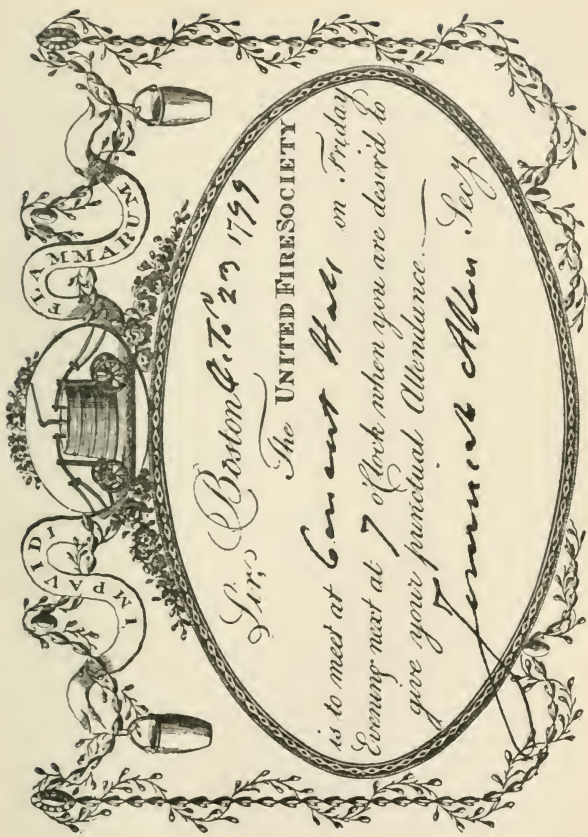 IMPAVIDI FLAMMARUM
Boston Octor 23 1799
Sir, The UNITED FIRE SOCIETY
is to meet at Concert Hall on Friday
Evening next at 7 o'Clock when you are desir'd to
give your punctual Attendance.
Jeremiah Allen Secy